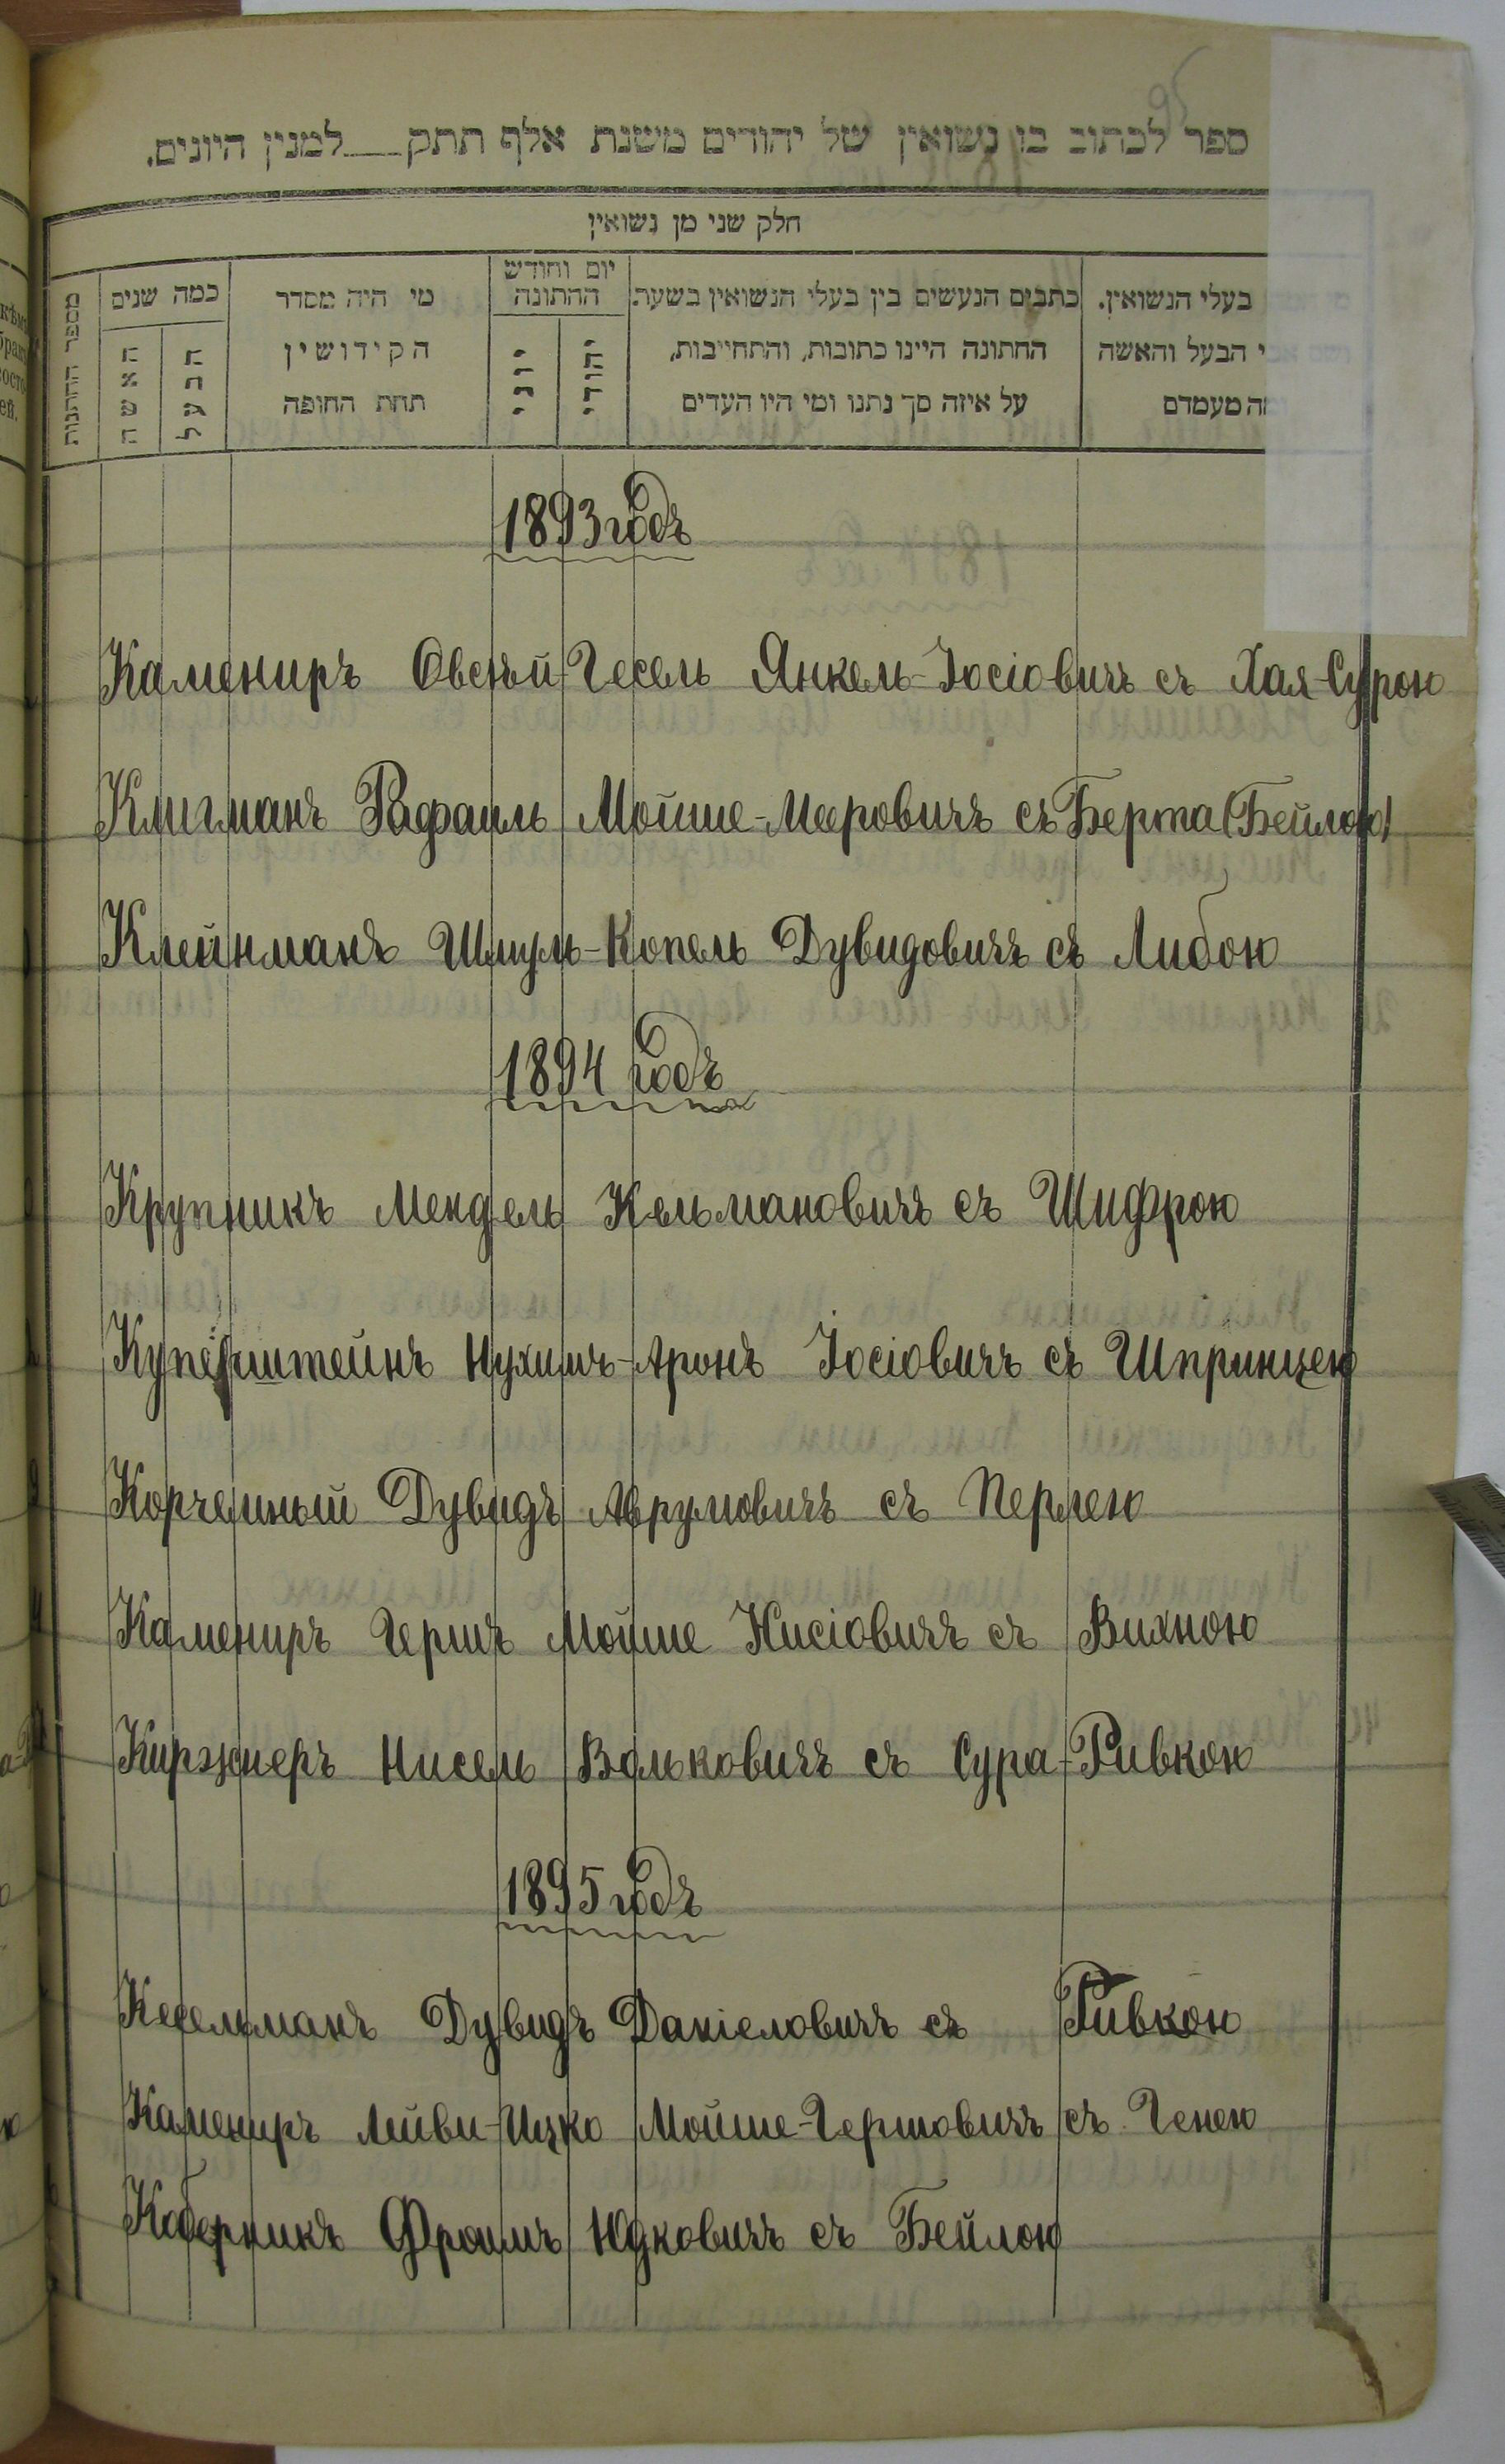 ספר לכתוב בו נשואין של יהודים משנת אלף תתק למנין היונים.
חלק שני מן נשואין
בעלי הנשואין.
הבעל והאשה
מעמדם
כתבים הנעשים בין בעלי הנשואין בשעת
החתונה היינו כתובות, והתחייבות,
על איזה סך נתנו ומי היו העדים
יום וחודש
החתונה
יהודי
יוני
מי היה מסדר
הקידושין
תחת החופה
כמה שנים
הבעל
האשה
מספר החתונות
1893 годъ
Камениръ Овсѣй-Гесель Янкель-Іосіовичъ съ Хая-Сурою
Клигманъ Рафаиль Мойше-Мееровичъ съ Берта (Бейлою)
Клейнманъ Шмуль-Копель Дувидовичъ съ Либою
1894 годъ
Крупникъ Мендель Кельмановичъ съ Шифрою
Куперштейнъ Нухимъ-Аронъ Іосіовичъ съ Шпринцею
Корчемный Дувидъ Аврумовичъ съ Перлею
Камениръ Гершъ Мойше Нисіовичъ съ Вихною
Киржнеръ Нисель Вольковичъ съ Сура-Ривкою
1895 годъ
Кесельманъ Дувидъ Даніеловичъ съ Ривкою
Камениръ Лейви-Ицко Мойше-Гершовичъ съ Генею
Коберникъ Фроимъ Юдковичъ съ Бейлою